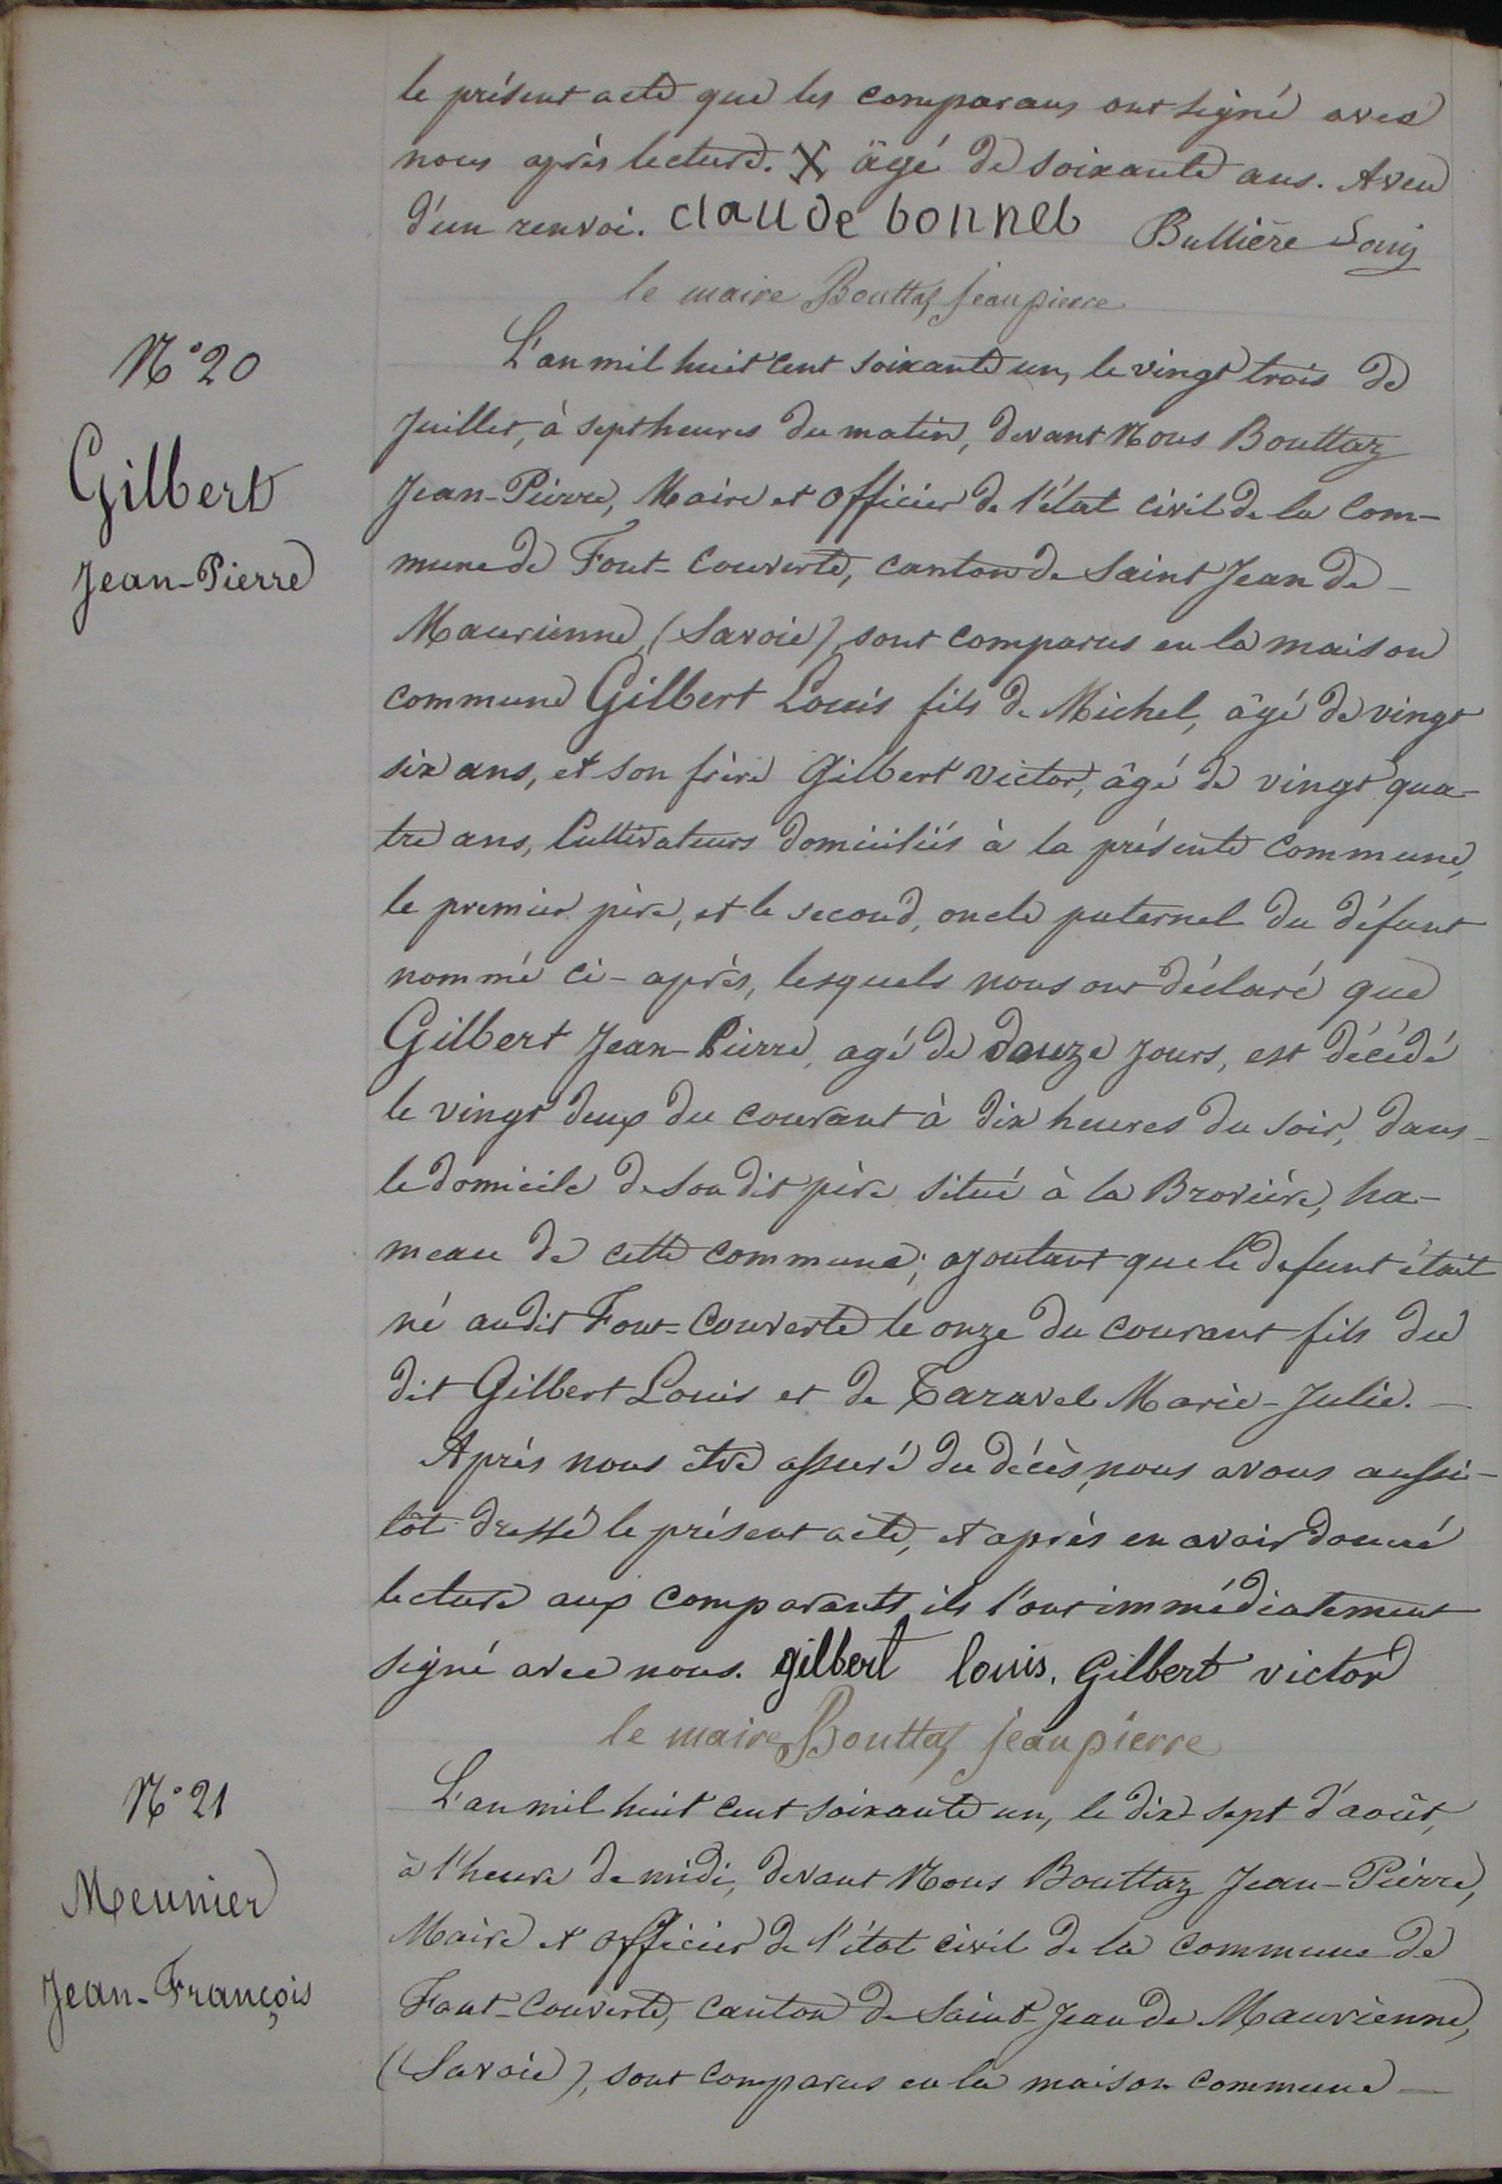 le présent acte que les comparans ont signé avec
nous après lecture. X âgé de soixante ans. Aveu
d'un renvoi. claude bonnel Bullière Louis
le maire Bouttaz jean pierre
N° 20
Gilbert
Jean-Pierre
L'an mil huit cent soixante un, le vingt trois de
Juillet, à sept heures du matin, devant Nous Bouttaz
Jean-Pierre, Maire et Officier de l'état civil de la Com-
mune de Font-Couverte, canton de Saint Jean de
Maurienne, (Savoie), sont comparus en la maison
commune Gilbert Louis fils de Michel, âgé de vingt
six ans, et son frère Gilbert Victor, âgé de vingt qua-
tre ans, Cultivateurs domiciliés à la présente Commune,
le premier père, et le second, oncle paternel du défunt
nommé ci-après, lesquels nous ont déclaré que
Gilbert Jean-Pierre, agé de douze Jours, est décédé
le vingt deux du courant à dix heures du soir, dans
le domicile de son dit père situé à la Brovière, ha-
meau de cette commune; ajoutant que le defunt était
né audit Font-Couverte le onze du courant fils du
dit Gilbert Louis et de Taravel Marie-Julie.
Après nous être assuré du décès, nous avons aussi-
tôt dressé le présent acte, et après en avoir donné
lecture aux comparants, ils l'ont immédiatement
signé avec nous. gilbert louis. Gilbert victor
le maire Bouttaz jean pierre
N° 21
Meunier
Jean-François
L'an mil huit cent soixante un, le dix sept d'août,
à l'heure de midi, devant Nous Bouttaz Jean-Pierre,
Maire et Officier de l'état civil de la commune de
Font-Couverte, Canton de Saint-Jean de Maurienne,
(Savoie), sont comparus en la maison commune